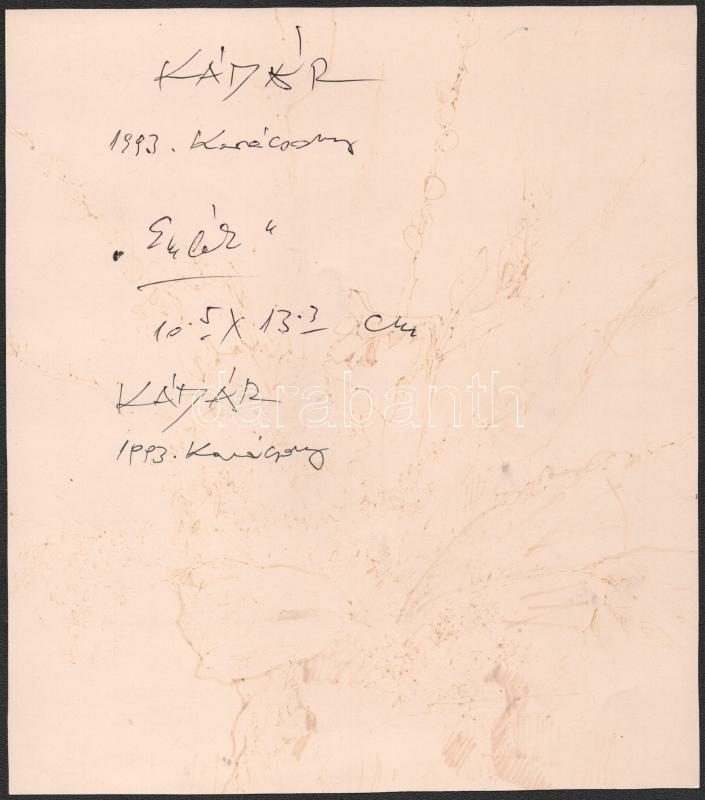 KÁDÁR
1993. Karácsony
„Emlék"
10.5 X 13.3 cm
darabanth
KÁDÁR
1993. Karácsony